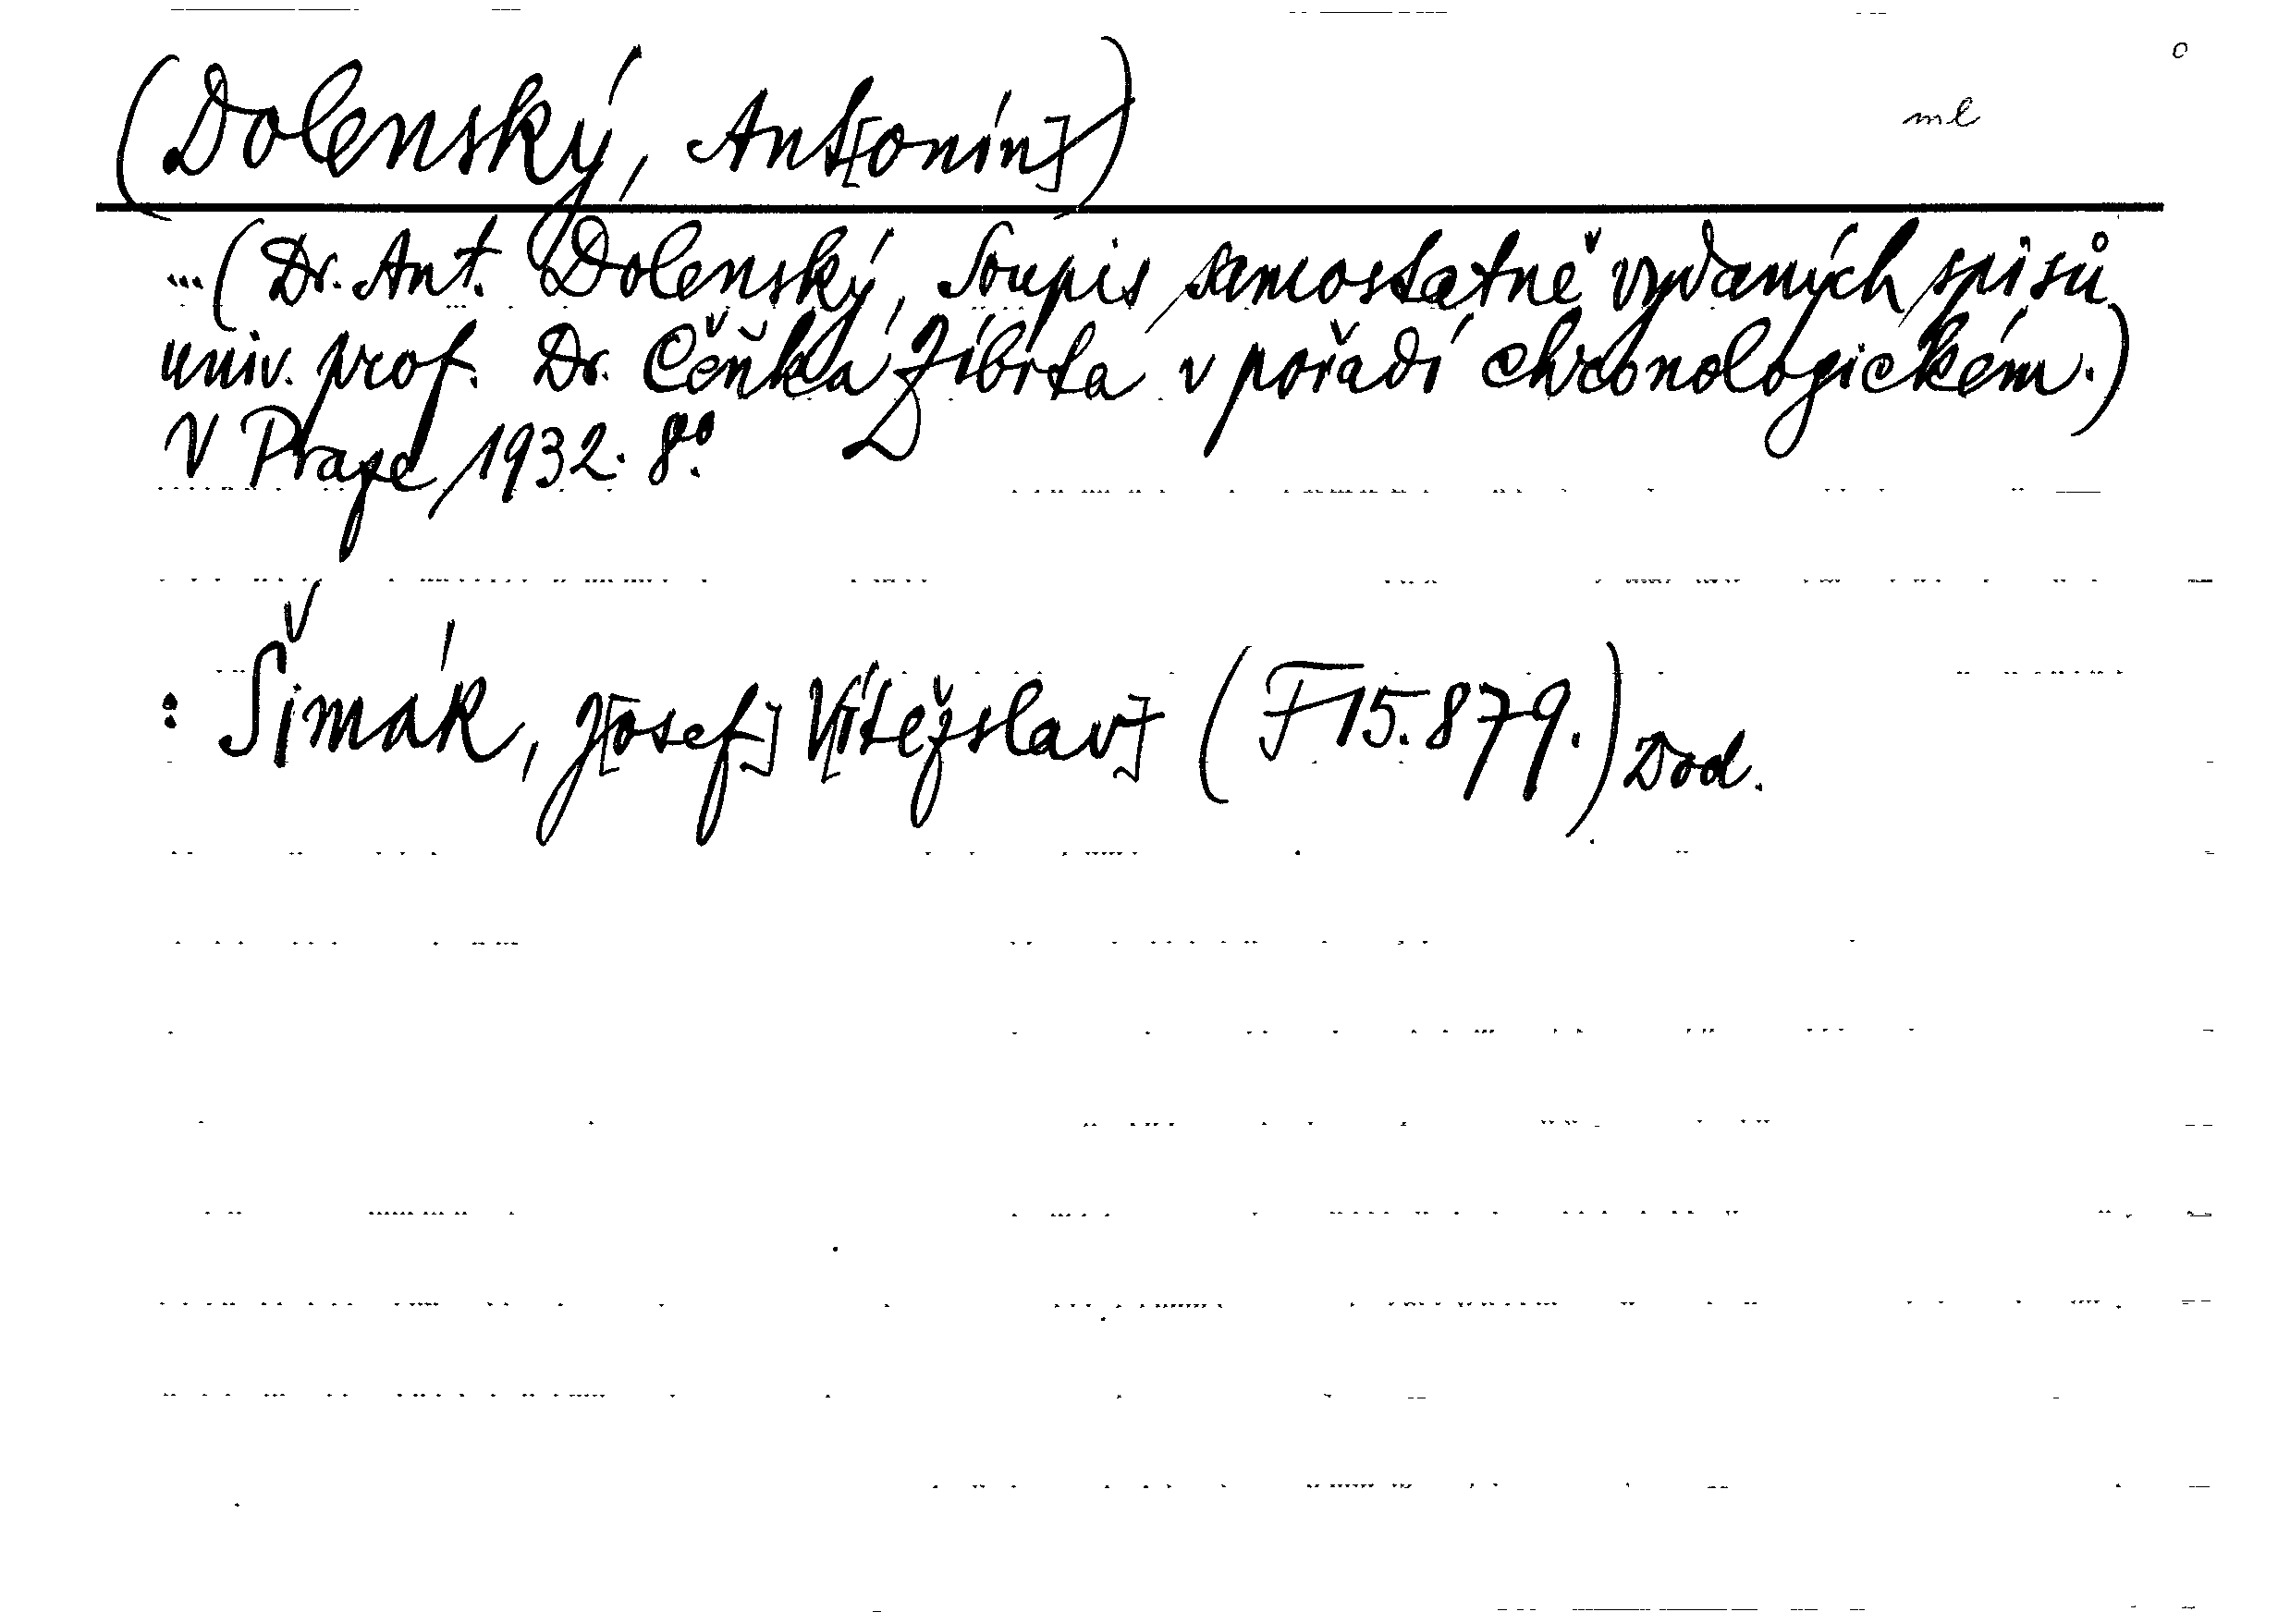 o
ml
(Dolenský, Ant[onín])
...(Dr. Ant. Dolenský, Soupis samostatně vydaných spisů
univ. prof. Dr. Čeňka Zíbrta v pořadí chronologickém.)
V Praze, 1932. 8°.
: Šimák, J[osef] V[ítězslav] (F 15.879.) Dod.